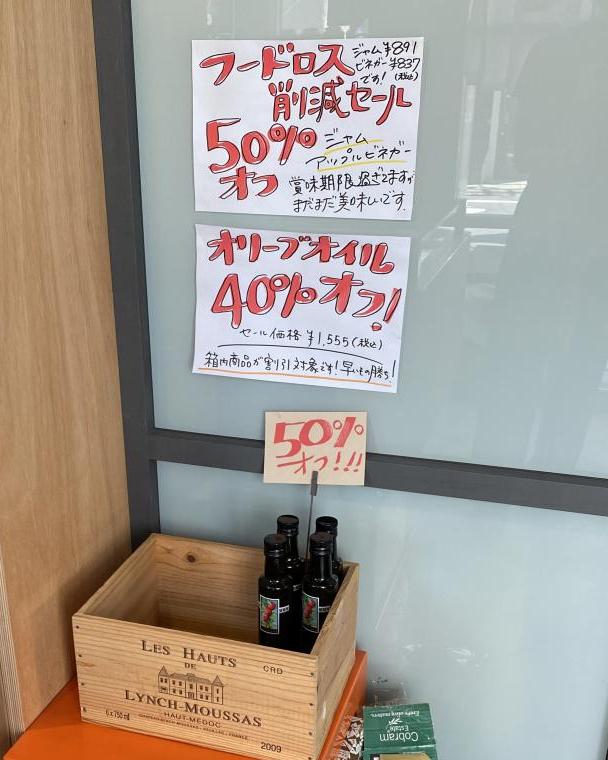 フードロス
削減セール
ジャム¥891
ビネガー¥837
です!(税込)
50%
オフ
ジャム
アップルビネガー
賞味期限過ぎてますが
まだまだ美味しいです。
オリーブオイル
40%オフ!
セール価格 ¥1,555(税込)
箱内商品が割引対象です!早いもの勝ち!
50%
オフ!!!
LES HAUTS
DE
CRD
LYNCH-MOUSSAS
HAUT-MEDOC
6x750ml
2009
Cobram
Estate